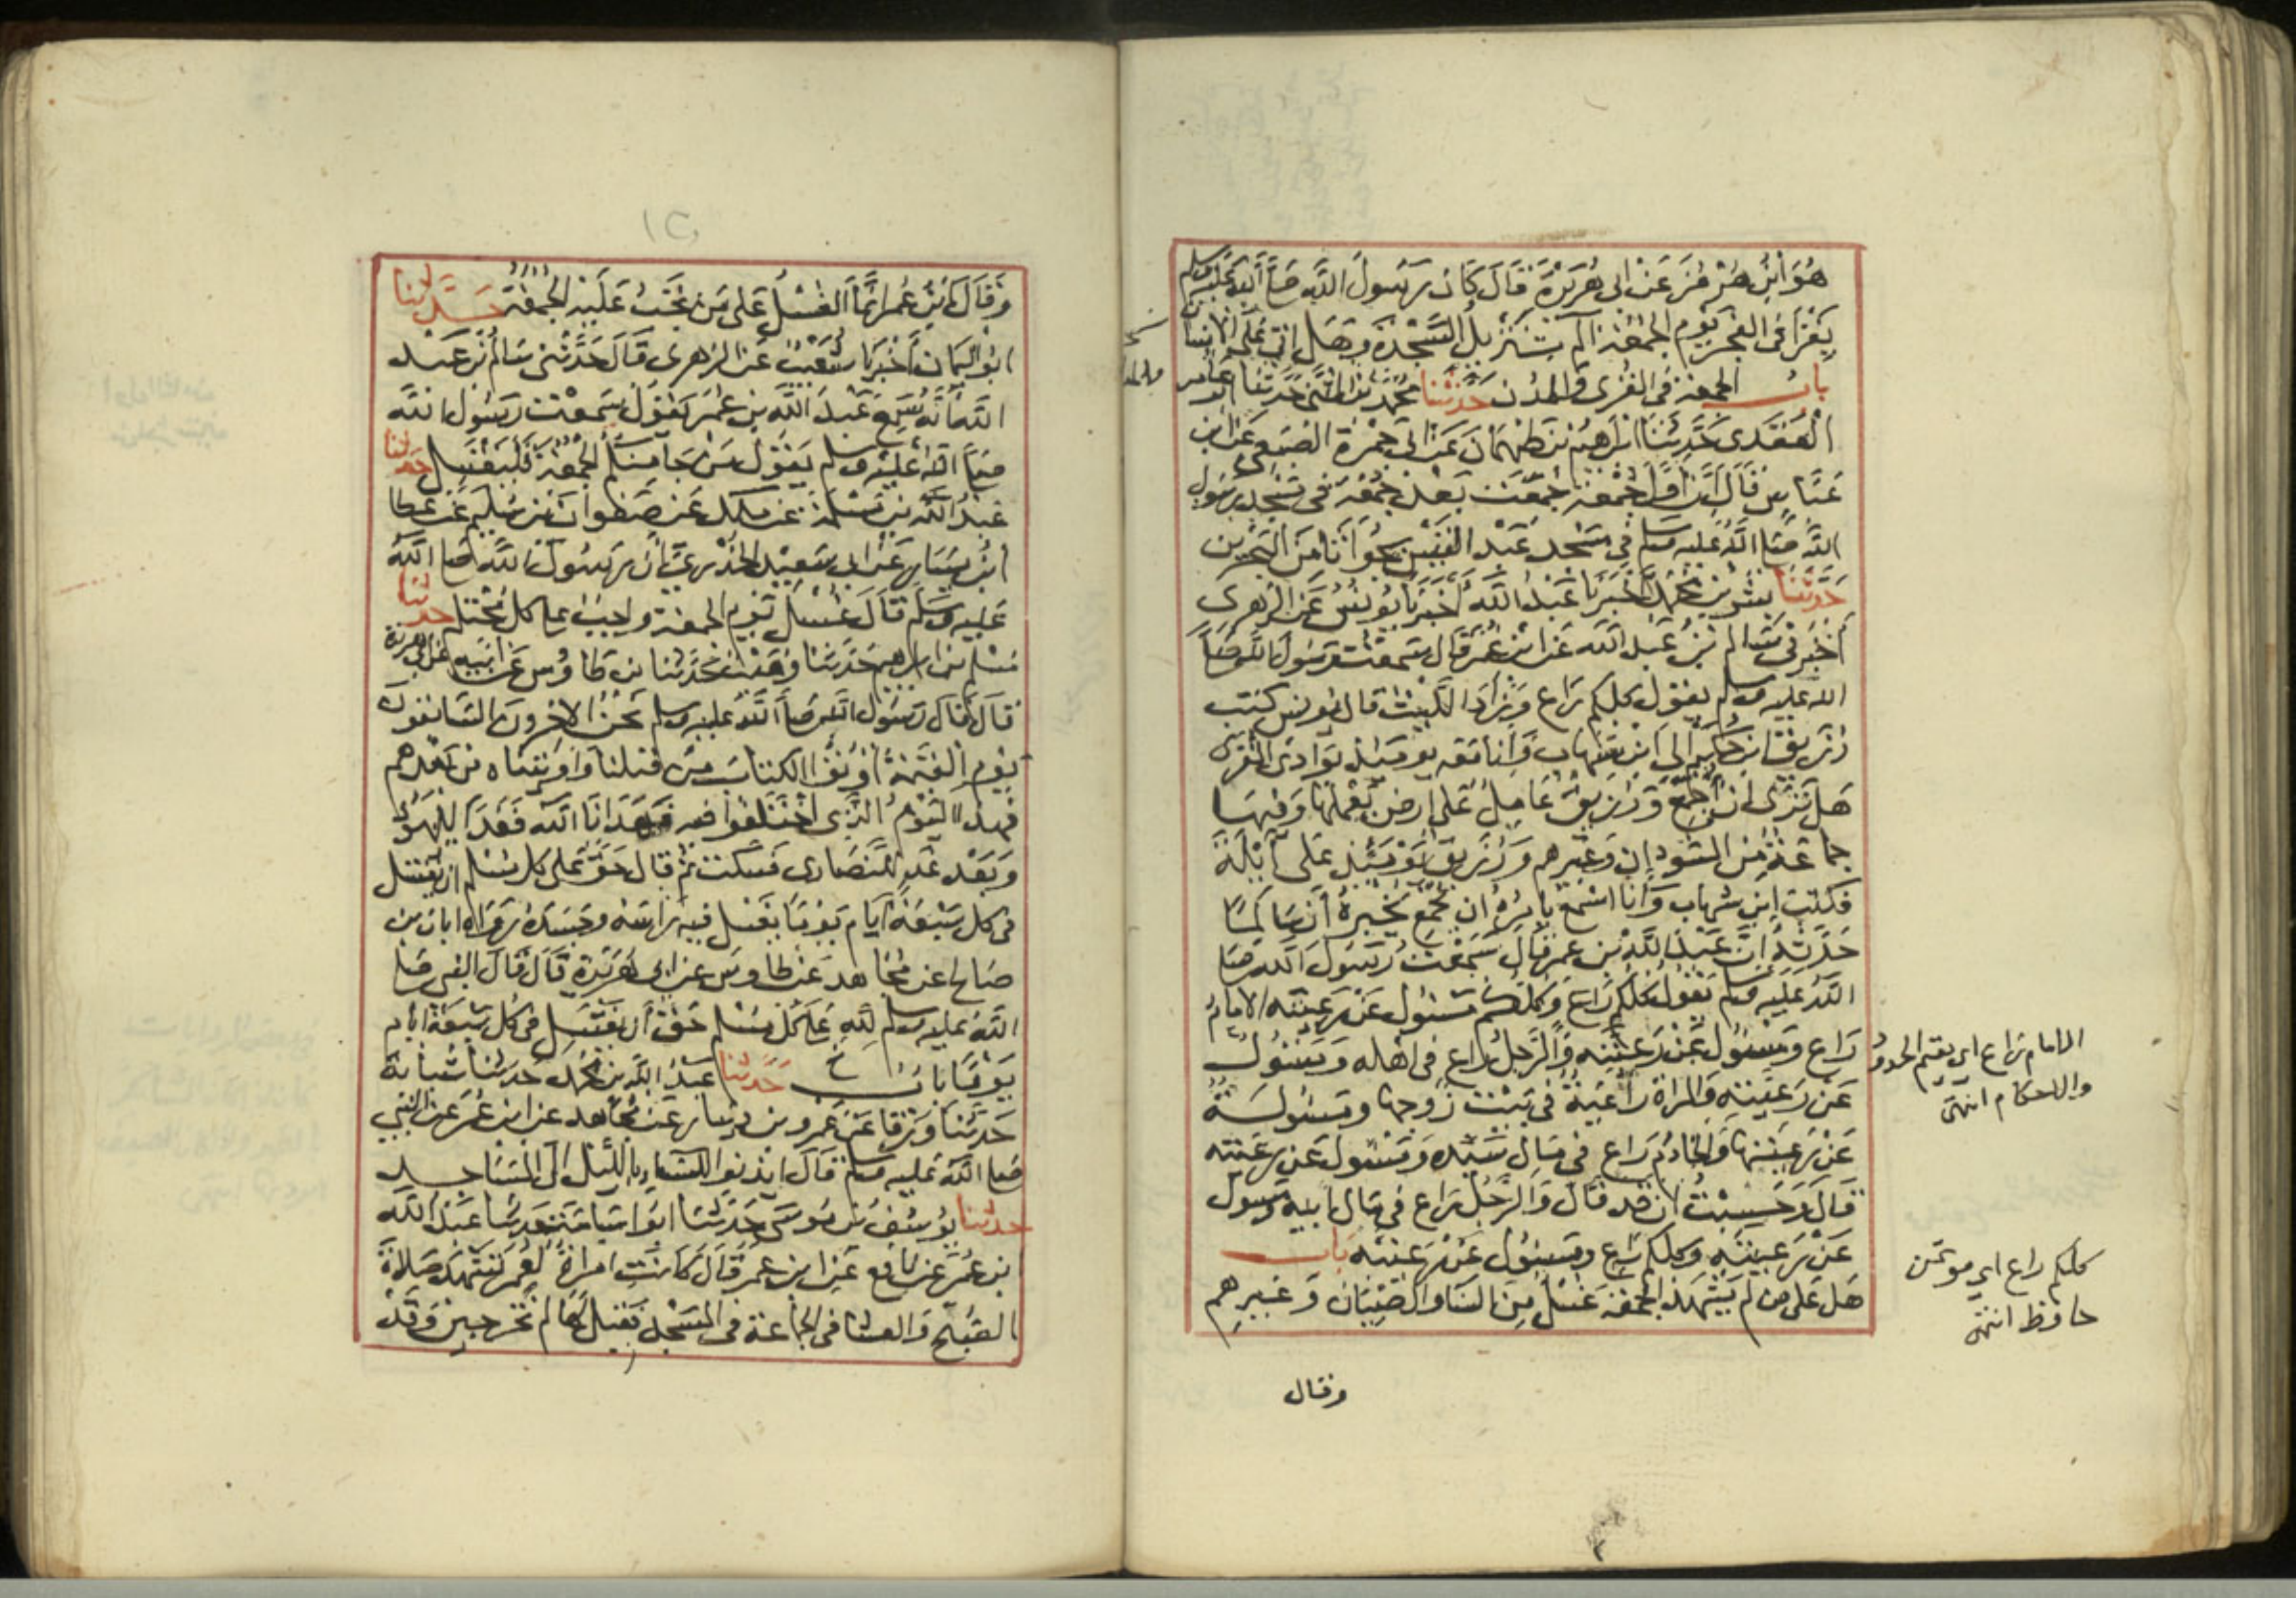 هُوَ ابْنُ هُرْمُزَ عَنْ ابى هُرَيْرَةَ قَالَ كَانَ رَسُولُ اللَّه صَلَّى اللّه عَلَيْه وسلم
يَقْرَأُ فى الفجر يَوْم الجمُعَة الم تَنْزِيلُ السَّجْدَةَ وهَلْ اتى عَلَى الانسان
باب الجمعة فى القُرَى والمدُن حَدَّثَنَا محمد بن المثنى حَدَّثنا ابو عامر
العَقَدى حَدَّثَنَا ابْرَاهيم بن طَهْمَانَ عَنْ ابى جَمْرَةَ الضبَعى عَن ابن
عَبَّاسٍ قَالَ انَّ اوَّلَ جُمْعَة جُمِّعَتْ بَعْدَ جُمُعَة فى مَسْجد رَسُول
اللَّه صَلى اللَّه عليه وسلم فِى مَسْجد عَبْد القَيْس بجُوَاثَا مَنَ البَحْرين
حَدَّثَنَا بشْر بن محمد اخْبَرَنَا عَبْدُ اللَّه أخْبَرَنَا يُونُسُ عَن الزهرى
أخْبَرَنى سَالم بْنُ عَبْد اللَّه عَن ابْن عُمَرَ قَالَ سَمعْتُ رَسُولَ اللَّه صَلَّى
اللَّه عليه وسلم يقول كلكم رَاع وَزَادَ اللَّيْثُ قال يُونس كتب
رُزَيْق بن حُكَيْم الى ابْن شهَاب وَأَنا مَعَه يومئذ بوَادى القُرَى
هَل تَرَى ان أُجَمِّعَ وَرُزَيْق عَاملٌ عَلى ارض يَعْمَلُهَا وَفيهَا
جماعَةٌ مِن السُّودَان وَغَيْرهم وَرُزَيْق يَوْمَئذ عَلى أَيْلَةَ
فكتب ابن شهاب وَأَنَا اسْمَعُ يأمُرُهُ ان يُجَمِّعَ يُخْبرُهُ أَنَّ سَالمًا
حَدَّثَهُ انَّ عَبْدَ اللَّه بْن عمر قَالَ سَمعْتُ رَسُولَ اللَّه صَلى
اللَّه عليه وسلم يَقُولُ كُلُّكُمْ رَاعٍ وَكُلُّكُمْ مَسْئُولٌ عَنْ رَعِيَّتِه الامَامُ
رَاع ومَسْئُول عَنْ رَعيَّته وَالرَّجلُ رَاع فى اهْله وَمَسْئولٌ
عَنْ رَعيَّته وَالمراةُ رَاعيَةٌ فى بَيْت زَوجها ومسئولَةٌ
عَنْ رَعيَّتهَا وَالخَادُم رَاع فى مَال سَيِّده وَمَسْئول عَن رَعيَّته
قَالَ وَحَسِبْتُ ان قد قَال وَالرَّجُلُ رَاع فى مَال ابيه ومسول
عَنْ رَعيَّته وكلكم رَاع ومَسئول عَنْ رَعيَّته باب
هَل عَلى من لم يَشْهَد الجمعَة غسْل مِنَ النسَا وَالصِّبْيَان وَغيرهم
وقال
الامام رَاع اى يقيم الحدود
والاحكام انتهى
كلكم راع اى موتمن
حافظ انتهى
١٢
وَقَالَ ابْن عُمَر انَّمَا الغسْلُ عَلى مَن تَجبُ عَلَيْه الجمعَة حَدَّثنا
ابو اليَمَان أَخْبَرَنا شُعَيْبٌ عَن الزهرى قَالَ حَدَّثَنى سَالم بْن عَبْد
اللَّه أَنَّهُ سَمعَ عَبْدَ اللَّه بن عُمَر يَقُول سَمعْت رَسُولَ اللَّه
صَلى اللَّه عَلَيْه وسلم يَقُول مَنْ جَا مِنكُمُ الجمُعَة فَليَغْتَسِل حدثنا
عَبْدُ اللَّه بن مَسْلَمَة عَن مٰلك عَن صَفْوان بن سُلَيم عَن عَطا
ابْن يَسَار عَن ابى سَعيْد الخُدْرى انَّ رَسُولَ اللَّه صَلى اللَّه
عَليه وَسَلم قَالَ غُسْلُ يَوْم الجمعَة وَاجبٌ على كل محْتَلم حدثنا
مُسْلم بن ابراهيم حَدَّثَنَا وُهَيْب حَدَّثَنا ابن طَاوُس عَن ابيه عن ابى هريرة
قَالَ قَالَ رَسُول اللَّه صَلى اللَّه عليه وسلم نَحْنُ الاخرونَ السَّابقون
يَوْم القيٰمَة أُوتُوا الكتابَ من قبلنا وَاوتينَاه من بَعْدهم
فهذا اليَوْمُ الَّذى اخْتَلَفوا فيه فَهَدَانَا اللَّه فَغَدًا لليَهُود
وَبَعْد غَد للنَّصَارى فَسَكَتَ ثم قال حَقٌّ عَلى كل مُسْلم ان يَغْتسل
فى كل سَبْعَة أيَّام يَوْمًا يَغْسل فيه رَاسَه وجَسَدَهُ رَوَاه ابان بن
صَالح عن مُجَاهد عَن طَاوس عَن ابى هُرَيْرَة قَالَ قَالَ النبى صَلى
اللَّه عليه وسلم للَّه عَلى كل مُسْلم حَقٌّ أن يَغْتَسِل فى كل سَبْعَة ايَّام
يَوْمًا باب حَدَّثنا عَبْدُ اللَّه بن محمد حَدثَنا شَبَابَةُ
حَدَّثَنَا وَرْقَا عَن عَمرو بن دينَار عَن مُجَاهد عَن ابن عُمَر عَن النبى
صَلى اللَّه عليه وسلم قَالَ ايذنوا للنسَاء باللَّيْل الى المَسَاجد
حدثنا يُوسُفُ بن مُوسَى حَدَّثَنَا ابوا اسَامَة حَدثنا عَبْد اللَّه
بن عُمَرَ عَن نَافع عَن ابن عُمَر قَالَ كَانَت امرَاةٌ لعُمَر تَشْهَدُ صَلاةَ
الصُّبْح وَالعشا فى الجماعَة فى المَسْجد فَقيلَ لَهَا لم تَخْرجينَ وَقَدْ